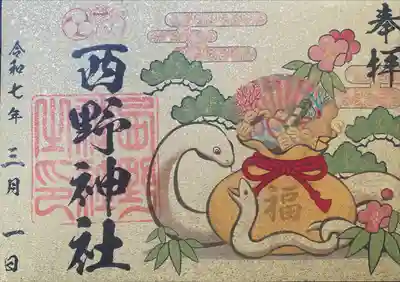 奉拝
西野神社
令和七年三月一日
福